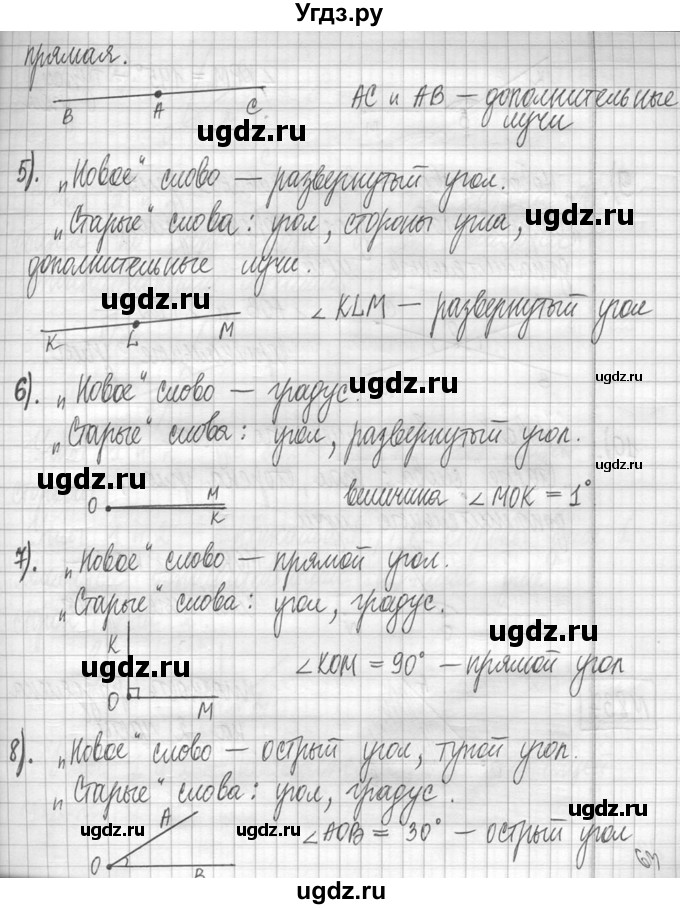 Угдз.ру
прямая.
B A C AC и AB — дополнительные
лучи
ugdz.ru
5). „Новое“ слово — развернутый угол.
„Старые“ слова: угол, стороны угла, ugdz.ru
дополнительные лучи.
ugdz.ru
K L M ∠KLM — развернутый угол
6). „Новое“ слово — градус. ugdz.ru ugdz.ru
„Старые“ слова: угол, развернутый угол.
O M K величина ∠MOK = 1°
ugdz.ru
7). „Новое“ слово — прямой угол.
„Старые“ слова: угол, градус. ugdz.ru
K O M ∠KOM = 90° — прямой угол
ugdz.ru ugdz.ru
8). „Новое“ слово — острый угол, тупой угол.
„Старые“ слова: угол, градус.
A O B ∠AOB = 30° — острый угол
ugdz.ru ugdz.ru ugdz.ru ugdz.ru
63
ugdz.ru